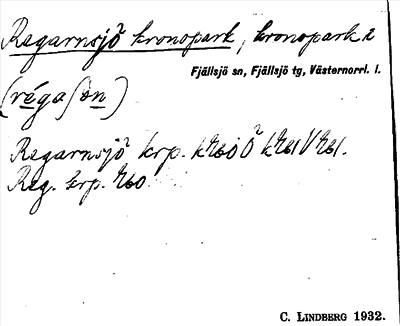 Regarnsjö kronopark, kronopark i
Fjällsjö sn, Fjällsjö tg, Västernorrl. l.
(régaʃön)
Regarnsjö krp.
Reg. krp.
C. LINDBERG 1932.